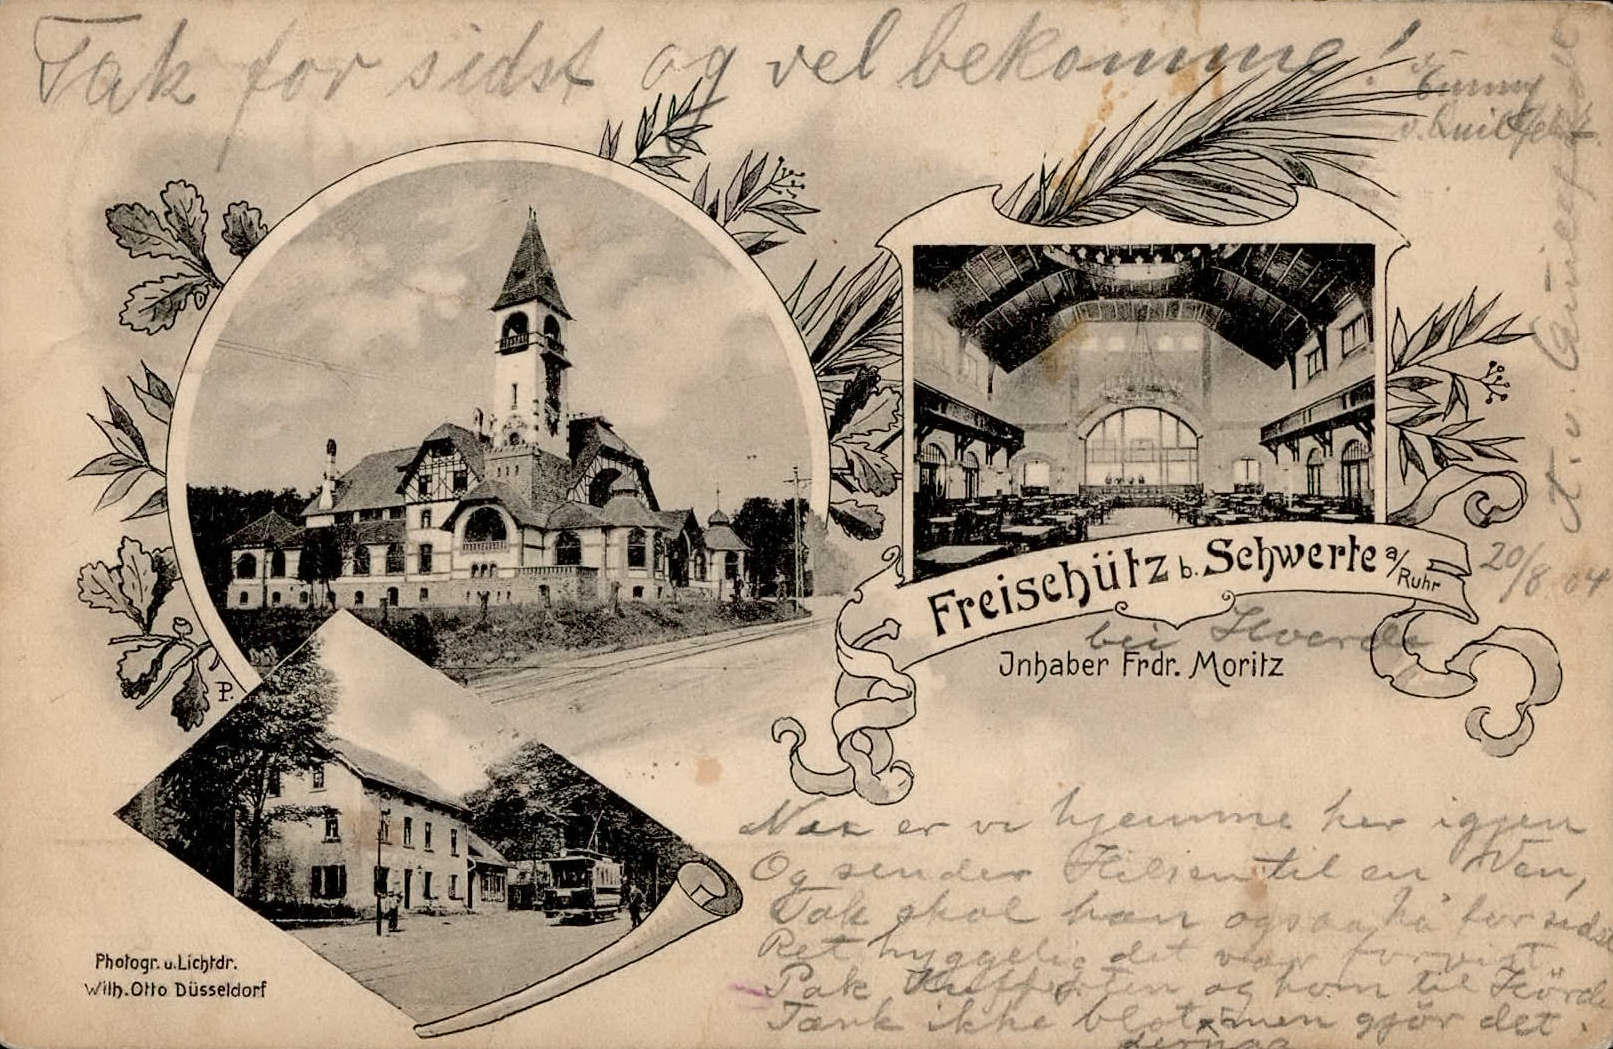 Tak for sidst og vel bekomme!
Emmy
v.
Freischütz b. Schwerte a/Ruhr
20/8 04
bei Hoerde
Inhaber Frdr. Moritz
P.
Nu er vi hjemme her igjen
Og sender Hilsen til en Ven,
Tak skal han ogsaa ha for sidst
Ret hyggelig det var forvist
Pak Kufferten og kom til Hörde
Tænk ikke blot men gjör det.
Photogr. u. Lichtdr.
Wilh. Otto Düsseldorf